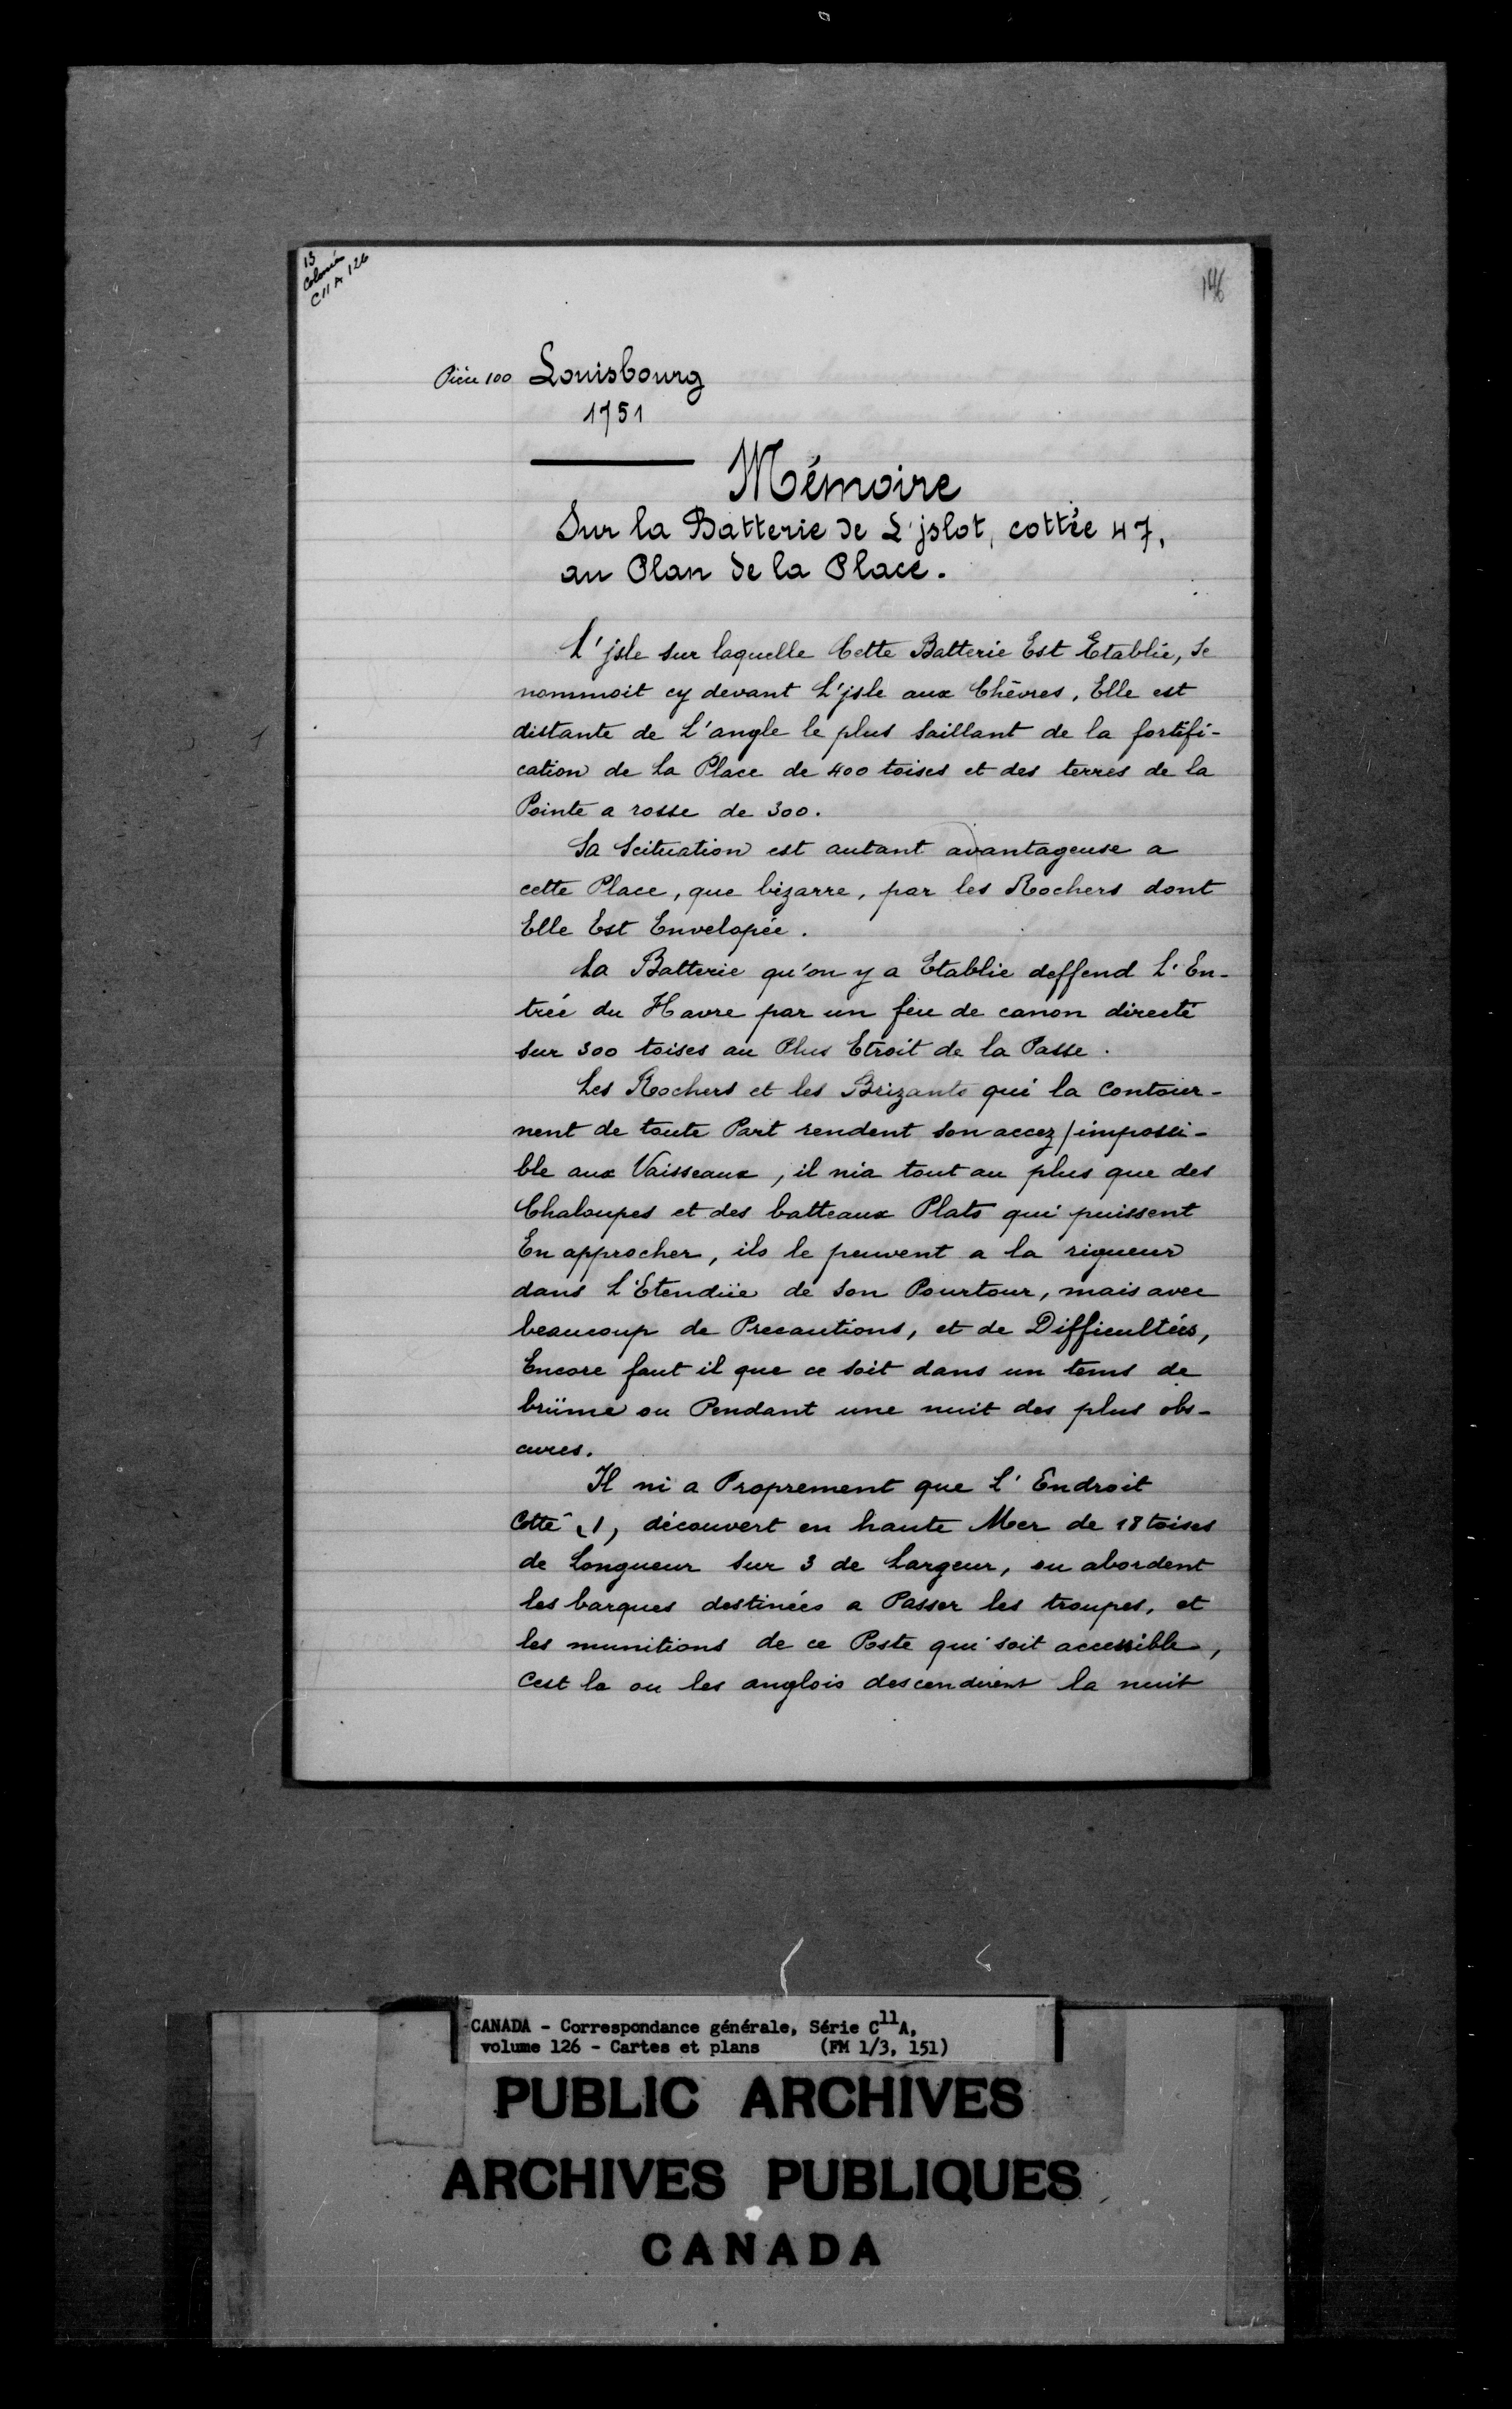 13
Colonies
C11 A 126
146
Pièce 100 Louisbourg
1751
Mémoire
Sur la Batterie de L'jslot, cottée 47,
au Plan de la Place.
L'jsle sur laquelle Cette Batterie Est Etablie, se
nommoit cy devant L'jsle aux Chêvres, Elle est
distante de L'angle le plus Saillant de la fortifi-
cation de La Place de 400 toises et des terres de la
Pointe a rosse de 300.
Sa Scituation est autant avantageuse a
cette Place, que bizarre, par les Rochers dont
Elle Est Envelopée.
La Batterie qu'on y a Etablie deffend L'En-
trée du Havre par un feu de canon directé
sur 300 toises au Plus Etroit de la Passe.
Les Rochers et les Brizants qui la Contour-
nent de toute Part rendent son accez/impossi-
ble aux Vaisseaux, il nia tout au plus que des
Chaloupes et des batteaux Plats qui puissent
En approcher, ils le peuvent a la rigueur
dans L'Etendüe de Son Pourtour, mais avec
beaucoup de Precautions, et de Difficultées,
Encore faut il que ce soit dans un tems de
brüme ou Pendant une nuit des plus obs-
cures.
Il ni a Proprement que L'Endroit
Cotté (1, découvert en haute Mer de 18 toises
de Longueur Sur 3 de Largeur, ou abordent
les barques destinées a Passer les troupes, et
les munitions de ce Poste qui soit accessible,
Cest la ou les anglois descendirent la nuit
CANADA - Correspondance générale, Série C11A,
volume 126 - Cartes et plans (FM 1/3, 151)
PUBLIC ARCHIVES
ARCHIVES PUBLIQUES
CANADA